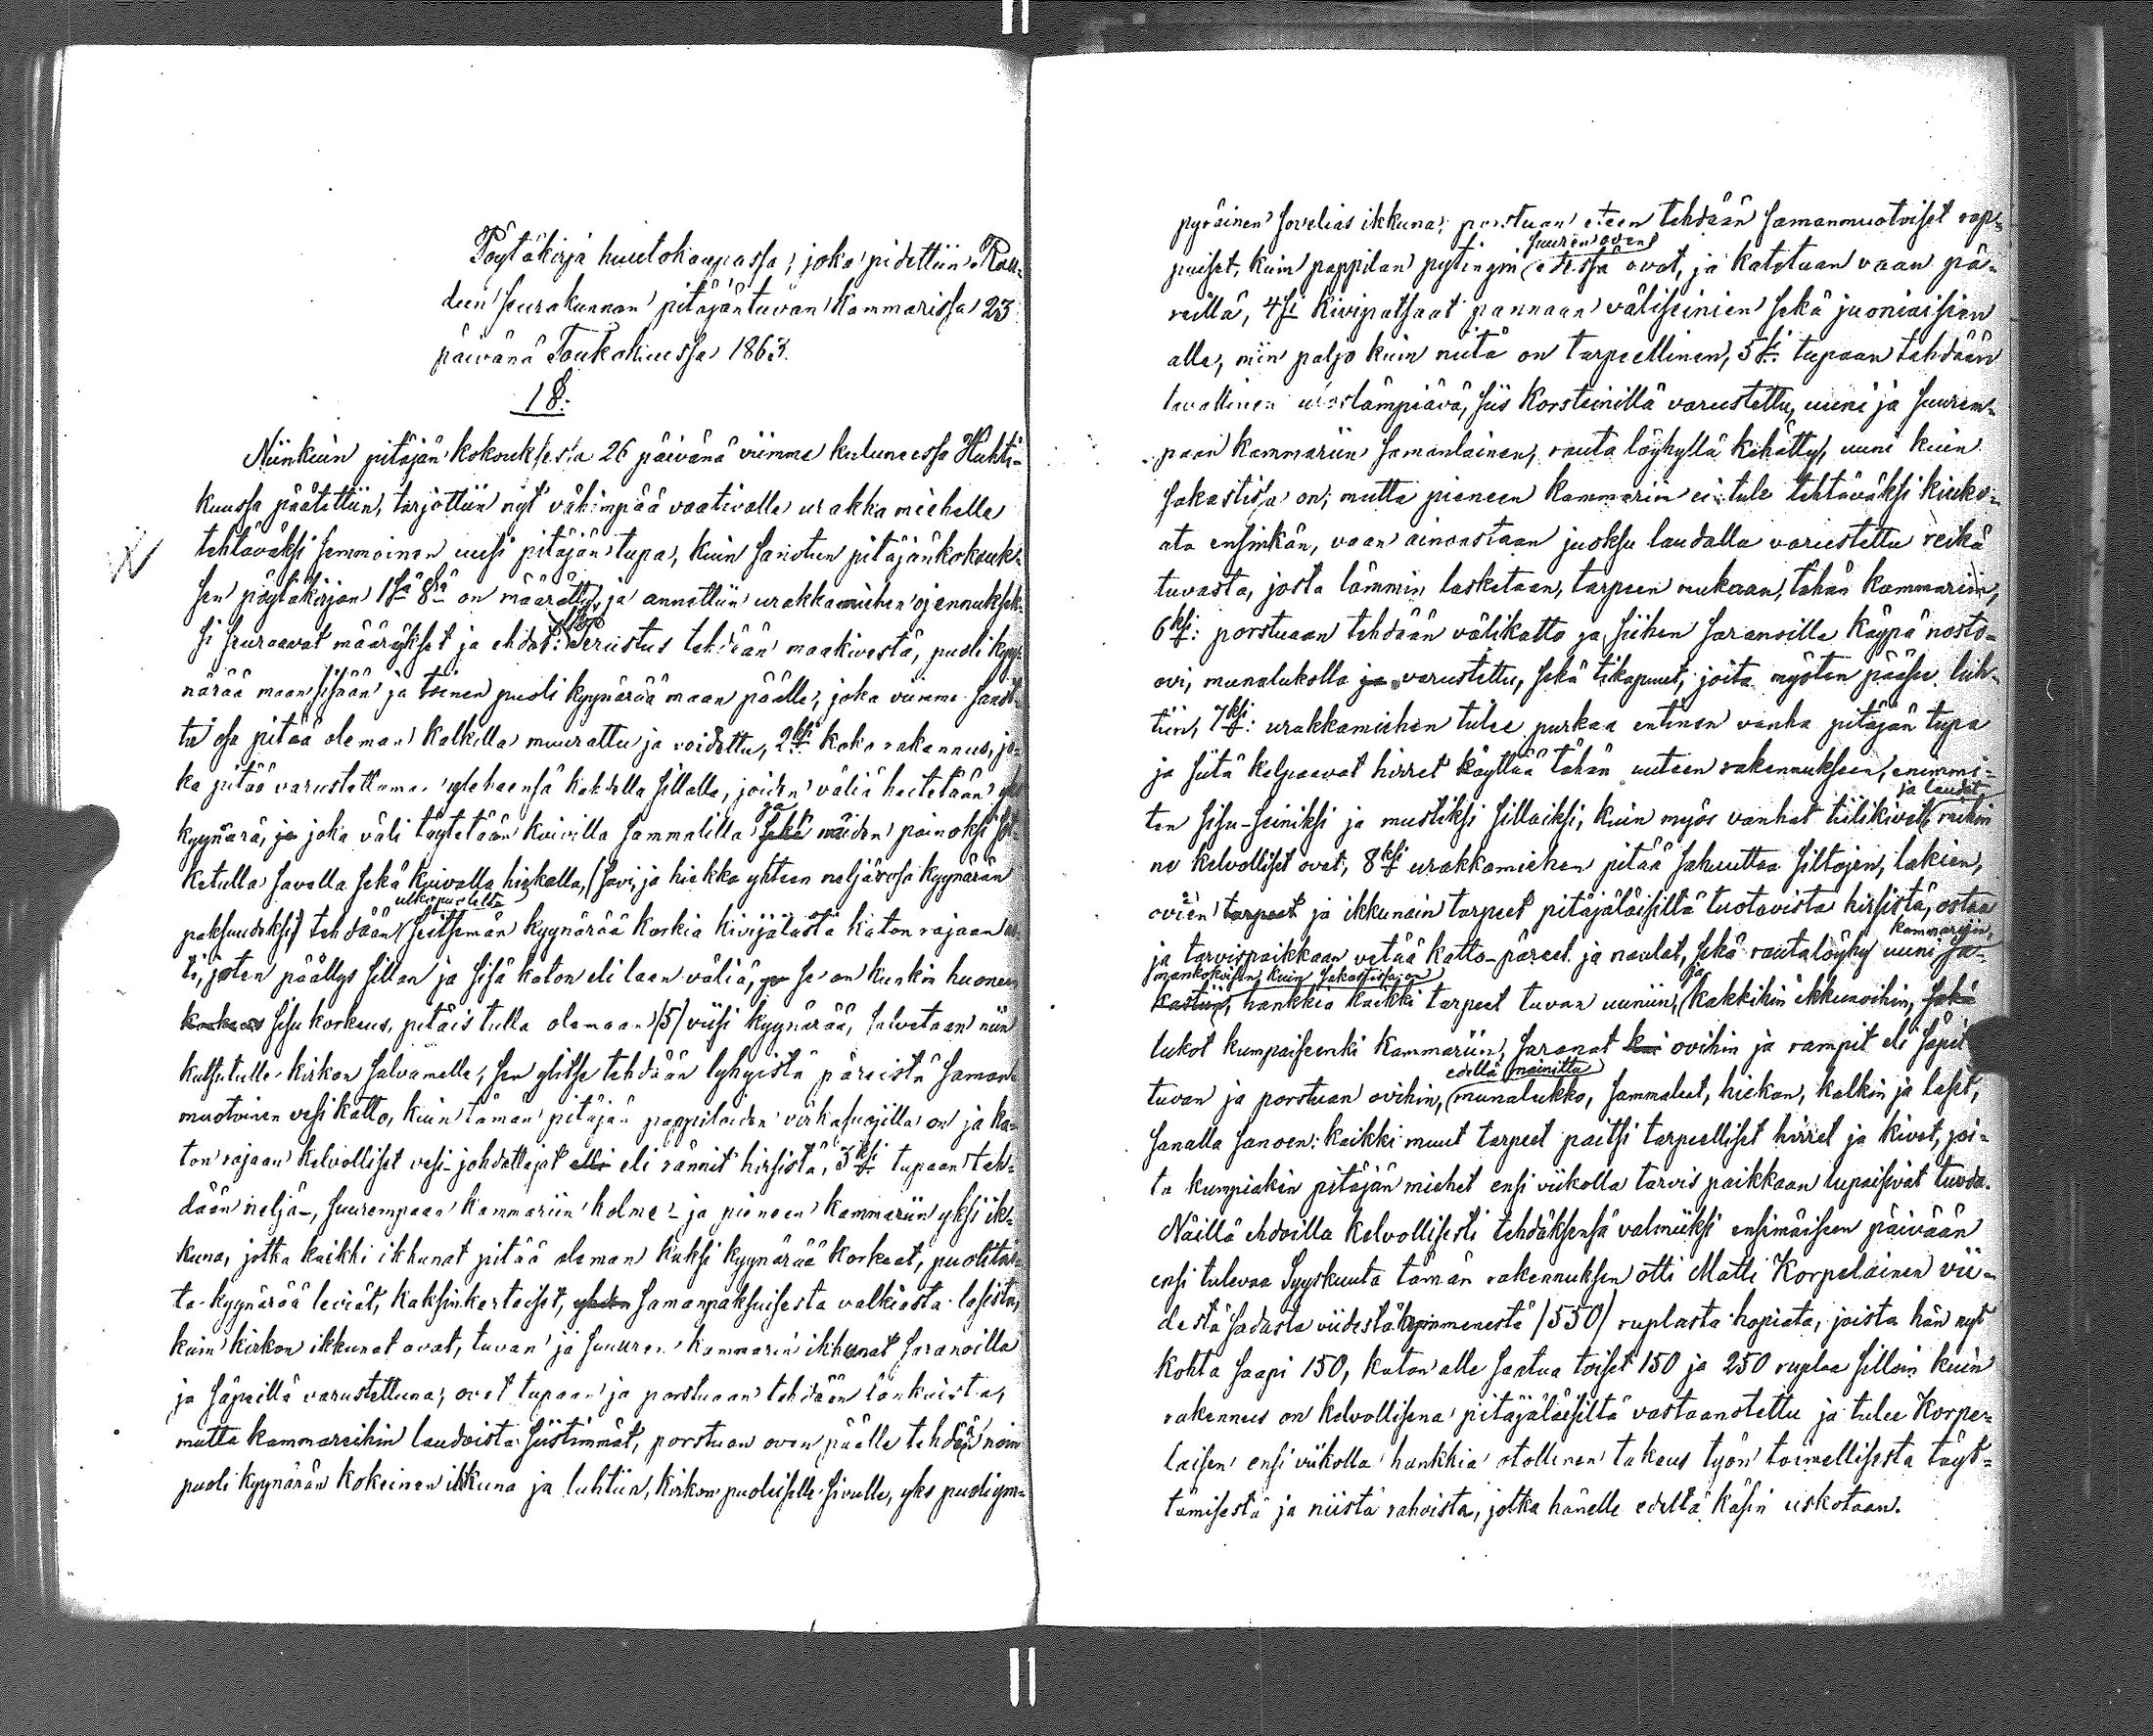 Pöytäkirja huutokaupassa, joka pidettiin Rau-
deen seurakunnan pitäjäntuvan kammarissa 23
päivänä Toukokuussa 1863.
1 §:
Niinkuin pitäjän kokouksessa 26 päivänä viimme kuluneessa Huhti-
kuussa päätettiin, tarjottiin nyt vähimpää vaativalle urakka miehelle
tehtäväksi semmoinen uusi pitäjän tupa, kuin sanotun pitäjänkokouk-
sen pöytäkirjan 1ssä §ssä on määrätty, ja annettiin urakkamiehen ojennuksek-
si seuraavat määräykset ja ehdot: 1ksi Perustus tehdään maakivestä, puoli kyy-
närää maan sisään ja toinen puoli kyynärää maan päälle, joka viimme sanot-
tu osa pitää oleman kalkilla muurattu ja voidettu, 2ksi koko rakennus, jo-
ka pitää varustettaman yleheensä kahdella sillalla, joiden väliä heitetään
kyynärä, ja joka väli täytetään kuivilla sammalilla sekä ja näiden painoksi sot-
ketulla savella sekä kuivalla hiekalla, (savi, ja hiekka yhteen neljäsosa kyynärän
paksuudeksi) tehdään ulkopuolelta seitsemän kyynärää korkia kivijalasta katon rajaan as-
ti, joten päällys sillan ja sisä katon eli laen väliä, ja se on kunkin huoneen
korkeus sisu korkeus, pitäis tulla olemaan /5/ viisi kyynärää, salvetaan niin
kutsutulle kirkon salvamelle, sen ylitse tehdään lyhyistä päreistä saman-
muotoinen vesikatto, kuin tämän pitäjän pappiloiden virkahuojilla on ja ka-
ton rajaan kelvolliset vesi-johdattajat elli eli rännit hirsistä, 3ksi tupaan teh-
dään neljä-, suurempaan kammariin kolme- ja pieneen kammariin yksi ik-
kuna, jotka kaikki ikkunat pitää oleman kaksi kyynärää korkeat, puolitois-
ta kyynärää leviät, kaksinkertaiset, yhden samanpaksuisesta valkiasta lasista,
kuin kirkon ikkunat ovat, tuvan ja suuren kammarin ikkunat saranoilla
ja säpeillä varustettuna, ovet tupaan ja porstuaan tehdään lankuista,
mutta kammareihin laudoista siistimmät, porstuan oven päälle tehdään noin
puoli kyynärän kokoinen ikkuna ja luhtiin, kirkon puoleiselle sivulle, yks puoliym-
pyräinen sovelias ikkuna, porstuan eteen tehdään samanmuotoiset rap-
puiset, kuin pappilan pytingin suuren oven edessä ovat, ja katetaan vaan pä-
reillä, 4si kivipatsaat pannaan väliseinien sekä juoniaisien
alle, niin paljo kuin niitä on tarpeellinen, 5ksi tupaan tehdään
tavallinen uloslämpiävä, siis korsteinillä varustettu, uuni ja suurem-
paan kammariin samanlainen, rauta löyhyllä kehätty, uuni kuin
sakastissa on, mutta pieneen kammariin ei tule tehtäväksi kiuko-
ata ensinkän, vaan ainoastaan juoksu laudalla varustettu reikä
tuvasta, josta lämmin lasketaan, tarpeen mukaan, tähän kammariin,
6ksi: porstuaan tehdään välikatto ja siihen saranoilla käypä nosto-
ovi, munalukolla ja varustettu, sekä tikapuut, joita myöten pääsee luh-
tiin, 7ksi: urakkamiehen tulee purkaa entinen vanha pitäjän tupa
ja siitä kelpaavat hirret käyttää tähän uuteen rakennukseen, enimmi-
ten sisu-seiniksi ja mustiksi sillaiksi, kuin myös vanhat tiilikivet ja laudat, mikin
ne kelvolliset ovat, 8ksi urakkamiehen pitää sahauttaa siltojen, lakien,
ovien tarpeet ja ikkunain tarpeet pitäjäläisiltä tuotavista hirsistä, ostaa
ja tarvispaikkaan vetää katto-päreet ja naulat, sekä rautalöyhy uuni kammariin, sa-
kastiin, mankokoisen kuin sakastissa on hankkia kaikki tarpeet tuvan uuniin, ja kakkihin ikkunoihin, sekä
lukot kumpaiseenki kammariin, saranat kai ovihin ja rampit eli säpit
tuvan ja porstuan ovihin, edellä mainittu munalukko, sammalet, hiekan, kalkin ja lasit,
sanalla sanoen: kaikki muut tarpeet paitsi tarpeelliset hirret ja kivet, joi-
ta kumpiakin pitäjän miehet ensi viikolla tarvis paikkaan lupaisivat tuoda.
Näillä ehdoilla kelvollisesti tehdäksensä valmiiksi ensimäiseen päivään
ensi tulevaa Syyskuuta tämän rakennuksen otti Matti Korpelainen vii-
destä sadasta viidestäkymmenestä /550/ ruplasta hopiata, joista hän nyt
kohta saapi 150, katon alle saatua toiset 150 ja 250 ruplaa silloin kuin
rakennus on kelvollisena pitäjäläisiltä vastaanotettu ja tulee Korpe-
laisen ensi viikolla hankkia otollinen takaus työn toimellisesta täyt-
tämisestä ja niistä rahoista, jotka hänelle edeltä käsin uskotaan.